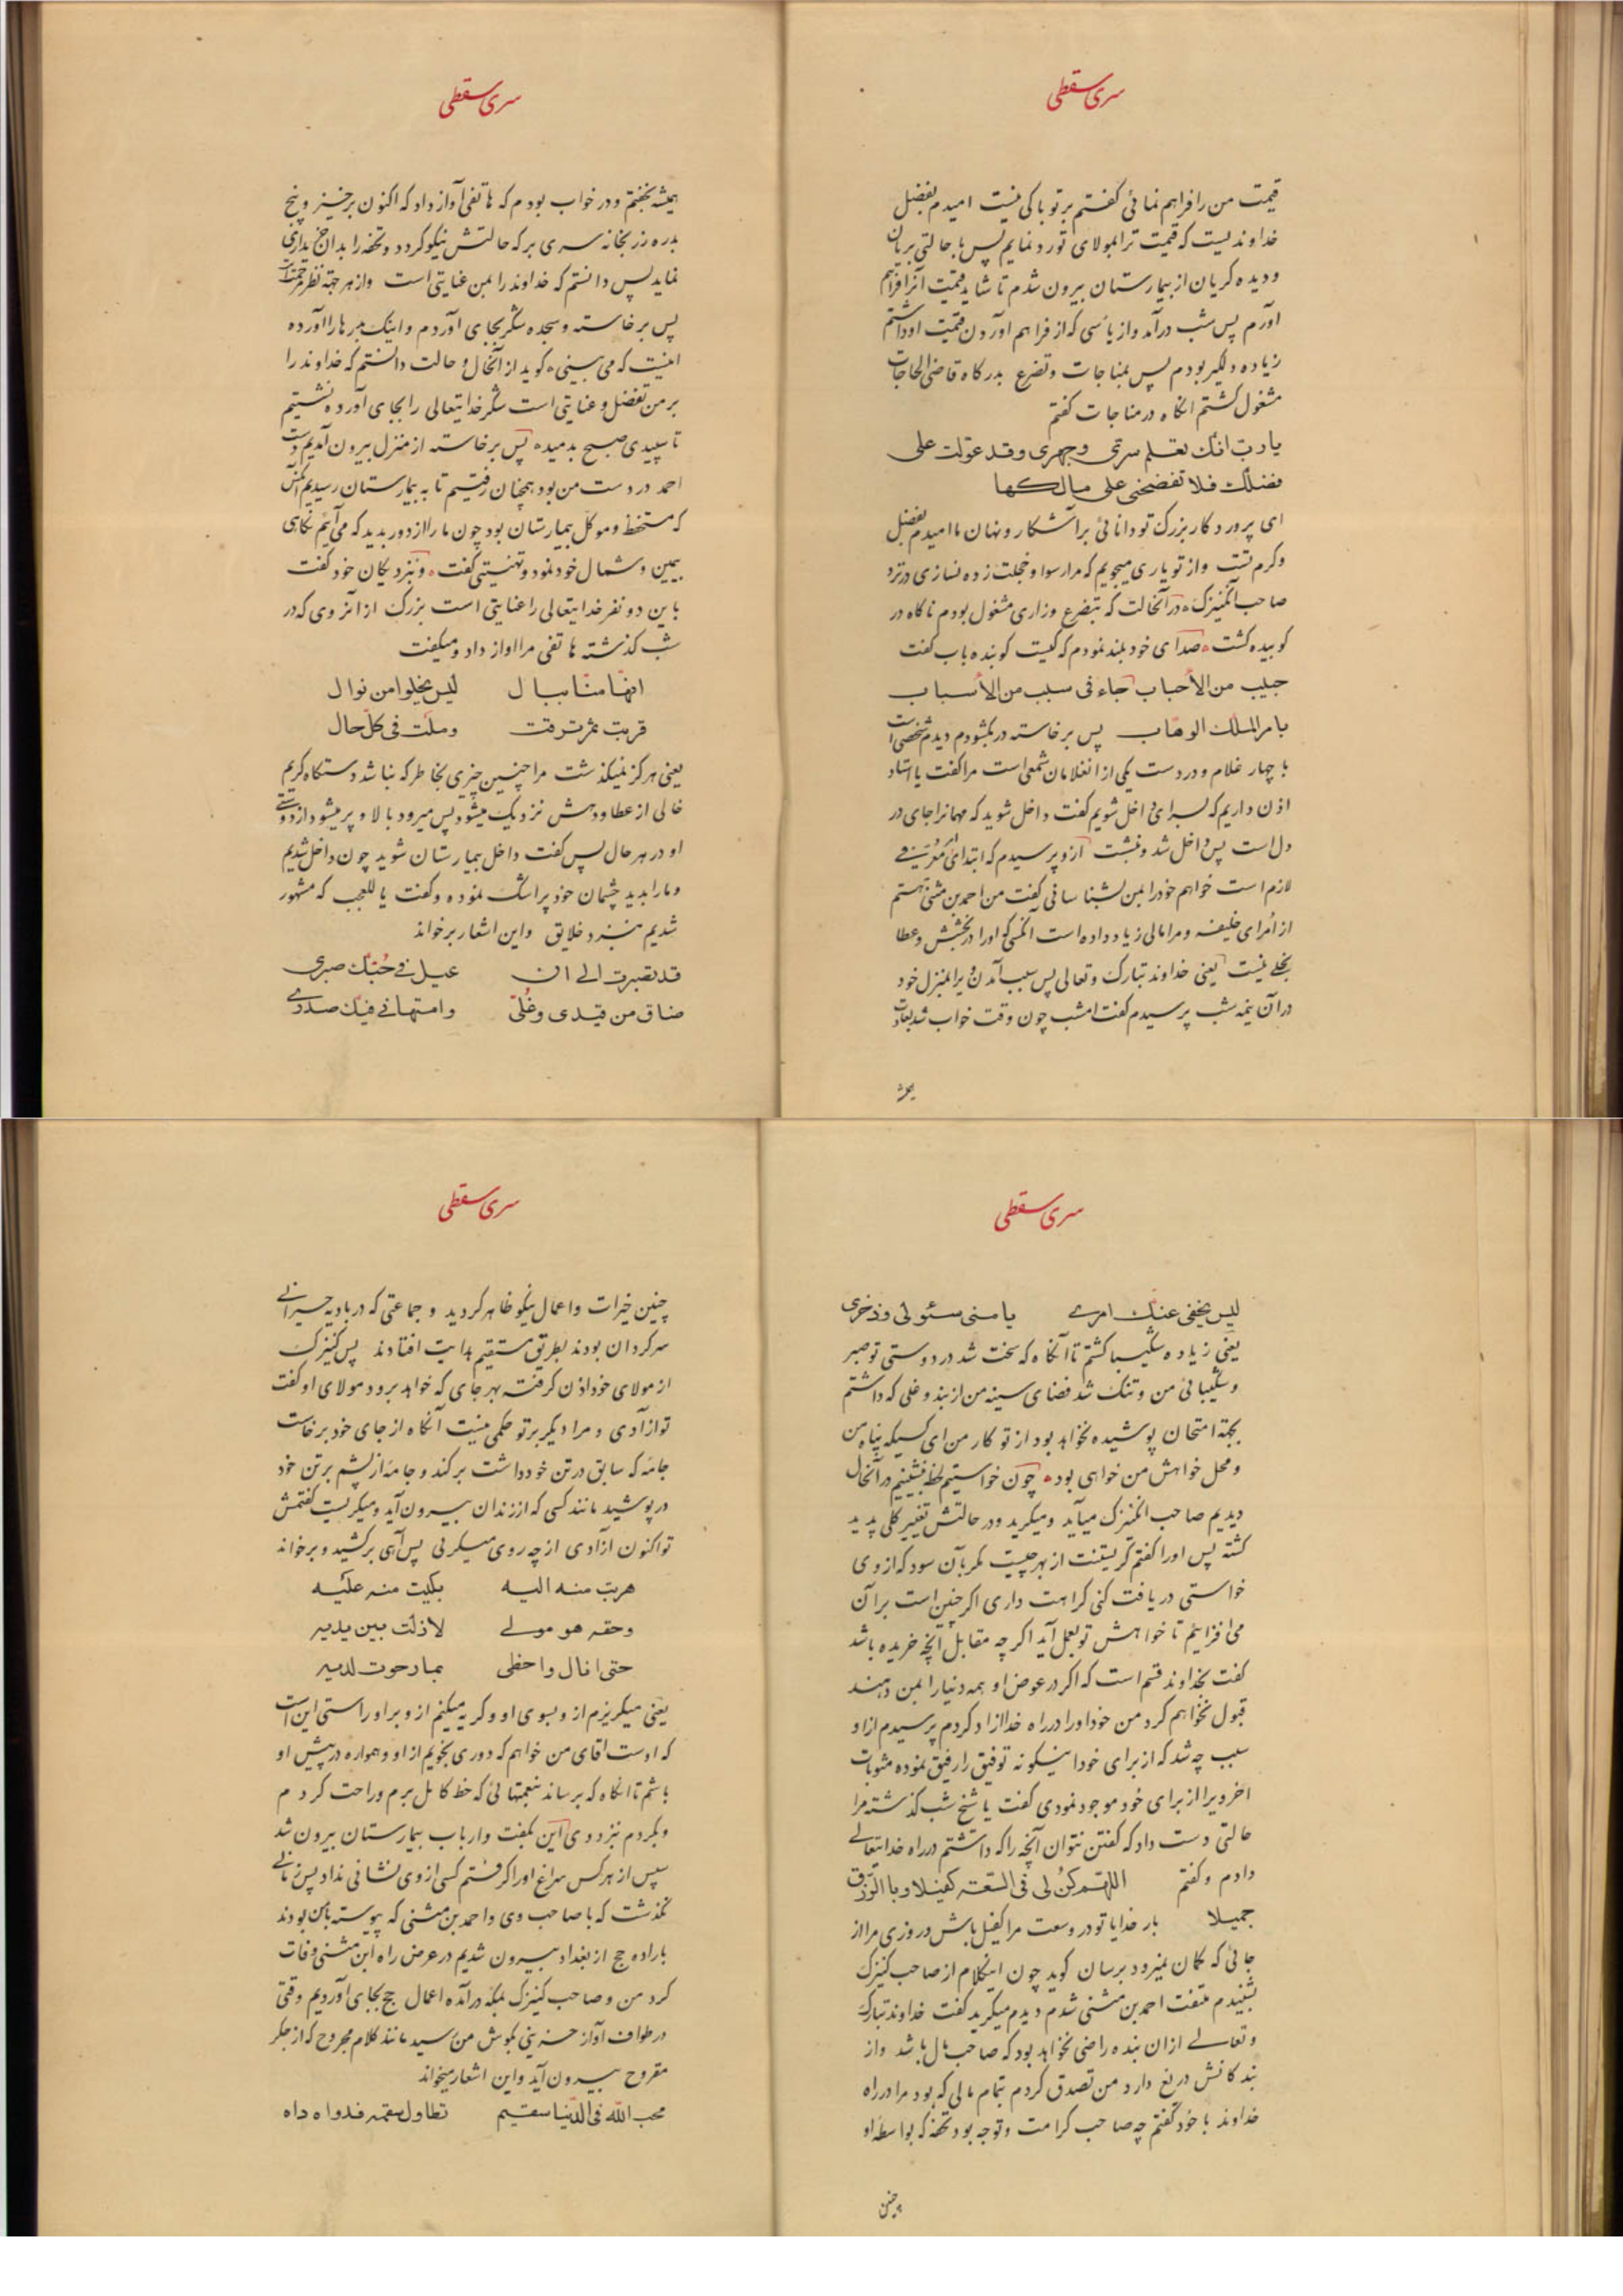 سری سقطی
قیمت من را فراهم نمائی گفتم بر تو باکی نیست امیدم بفضل
خداوندیست که قیمت ترا بمولای تو رد نمایم پس با حالتی بریان
و دیده گریان از بیمارستان بیرون شدم تا شاید قیمت آنرا فراهم
آورم پس شب درآمد و از یأسی که از فراهم آوردن قیمت او داشتم
زیاده دلگیر بودم پس بمناجات و تضرع بدرگاه قاضی الحاجات
مشغول گشتم آنگاه در مناجات گفتم
یا ربّ انّک تعلم سرّی و جهری و قد عوّلت علی
فضلک فلا تفضحنی علی مالکها
ای پروردگار بزرگ تو دانائی بر آشکار و نهان ما امیدم بفضل
و کرم تست و از تو یاری میجویم که مرا رسوا و خجلت زده نسازی در نزد
صاحب آنکنیزک در آنحالت که بتضرع و زاری مشغول بودم ناگاه در
کوبیده گشت صدای خود بلند نمودم که کیست کوبنده باب گفت
حبیب من الأحباب جاء فی سبب من الأسباب
بامر الملک الوهاب پس برخاسته در بگشودم دیدم شخصی است
با چهار غلام و در دست یکی از انغلامان شمعی است مرا گفت یا استاد
اذن داریم که بسرای داخل شویم گفت داخل شوید که مهمانرا جای در
دل است پس داخل شد و نشست ازو پرسیدم که ابتدای معرّفی
لازم است خواهم خود را بمن بشناسانی گفت من احمد بن مثنی هستم
از امرای خلیفه و مرا مالی زیاد داده است آنکسی که او را در بخشش و عطا
بخلی نیست یعنی خداوند تبارک و تعالی پس سبب آمدن ویرا بمنزل خود
در آن نیمه شب پرسیدم گفت امشب چون وقت خواب شد بعادت
سری سقطی
همیشه بخفتم و در خواب بودم که هاتفی آواز داد که اکنون برخیز و پنج
بدره زر بخانه سری بر که حالتش نیکو گردد و تحفه را بدان خریداری
نماید پس دانستم که خداوند را بمن عنایتی است و از هر جهة نظر رحمة است
پس برخاسته و سجده شکر بجای آوردم و اینک بدرها را آورده
اینست که می بینی گوید از آنحال و حالت دانستم که خداوند را
بر من تفضل و عنایتی است شکر خدایتعالی را بجای آورده نشستیم
تا سپیدی صبح بدمیده پس برخاسته از منزل بیرون آمدیم و دست
احمد در دست من بود همچنان رفتیم تا به بیمارستان رسیدیم آنکس
که مستحفظ و موکل بیمارستان بود چون ما را از دور بدید که می آئیم نگاهی
بیمین و شمال خود نمود و تهنیتی گفت و بنزدیکان خود گفت
باین دو نفر خدایتعالی را عنایتی است بزرگ از آنروی که در
شب گذشته هاتفی مرا آواز داد و میگفت
انها منّا ببال لیس یخلوا من نوال
قربت ثم ترقت و ملت فی کلّ حال
یعنی هرگز نمیگذشت مرا چنین چیزی بخاطر که نباشد دستگاه کریم
خالی از عطا و دهش نزدیک میشود پس میرود بالا و پر میشود از دوستی
او در هر حال پس گفت داخل بیمارستان شوید چون داخل شدیم
و ما را بدید چشمان خود پر اشک نموده و گفت یا للعجب که مشهور
شدیم بنزد خلایق و این اشعار برخواند
قد تصبرت الی ان عیل فی حبّک صبری
ضاق من قیدی و غلّی و امتهانی فیک صدری
سری سقطی
لیس یخفی عنک امری یا منی سئولی و ذخری
یعنی زیاده شکیبا گشتم تا آنگاه که سخت شد در دوستی تو صبر
و شکیبائی من و تنگ شد فضای سینه من از بند و غلی که داشتم
بجهة امتحان پوشیده نخواهد بود از تو کار من ای کسیکه پناه من
و محل خواهش من خواهی بود چون خواستیم لحظ بنشینیم در آنحال
دیدیم صاحب انکنیزک میآید و میگرید و در حالتش تغییر کلی پدید
گشته پس او را گفتم گریستنت از بهر چیست مگر بآن سود که از وی
خواستی دریافت کنی کراهت داری اگر چنین است بر آن
می افزایم تا خواهش تو بعمل آید اگر چه مقابل آنچه خریده باشد
گفت بخداوند قسم است که اگر در عوض او همه دنیا را بمن دهند
قبول نخواهم کرد من خود او را در راه خدا ازاد کردم پرسیدم از او
سبب چه شد که از برای خود اینگونه توفیق را رفیق نموده مثوبات
اخرویرا از برای خود موجود نمودی گفت یا شیخ شب گذشته مرا
حالتی دست داد که گفتن نتوان آنچه را که داشتم در راه خدایتعالی
دادم و گفتم اللهم کن لی فی السّعة کفیلا و بالرّزق
جمیلا بار خدایا تو در وسعت مرا کفیل باش در روزی مرا از
جائی که گمان نمیرود برسان گوید چون اینکلام از صاحب کنیزک
بشنیدم ملتفت احمد بن مثنی شدم دیدم میگرید گفت خداوند تبارک
و تعالی از ان بنده راضی نخواهد بود که صاحب مال باشد و از
بندگانش دریغ دارد من تصدق کردم تمام مالی که بود مرا در راه
خداوند با خود گفتم چه صاحب کرامت و توجه بود تحفه که بواسطه او
چنین
سری سقطی
چنین خیرات و اعمال نیکو ظاهر گردید و جماعتی که در بادیه حیرانی
سرگردان بودند بطریق مستقیم هدایت افتادند پس کنیزک
از مولای خود اذن گرفت بهر جای که خواهد برود مولای او گفت
تو ازادی و مرا دیگر بر تو حکمی نیست آنگاه از جای خود برخاست
جامه که سابق در تن خود داشت برکند و جامه از پشم بر تن خود
در پوشید مانند کسی که از زندان بیرون آید و میگریست گفتمش
تو اکنون آزادی از چه روی میگریی پس آهی برکشید و برخواند
هربت منه الیه بکیت منه علیه
و حقه هو مولی لا زلت بین یدیه
حتی انال و احظی بما رجوت لدیه
یعنی میگریزم از و بسوی او و گریه میکنم از و بر او راستی این است
که اوست اقای من خواهم که دوری نجویم از او و همواره در پیش او
باشم تا انگاه که برساند بنعمتهائی که حظ کامل برم و راحت گردم
و بگردم نزد وی این بگفت و از باب بیمارستان بیرون شد
سپس از هر کس سراغ او را گرفتم کسی از وی نشانی نداد پس زمانی
نگذشت که با صاحب وی و احمد بن مثنی که پیوسته با من بودند
باراده حج از بغداد بیرون شدیم در عرض راه ابن مثنی وفات
کرد من و صاحب کنیزک بمکه درآمده اعمال حج بجای آوردیم وقتی
در طواف آواز حزینی بگوش من رسید مانند کلام مجروح که از جگر
مقروح بیرون آید و این اشعار میخواند
محب اللّه فی الدّنیا سقیم تطاول سقمه فدواه داه